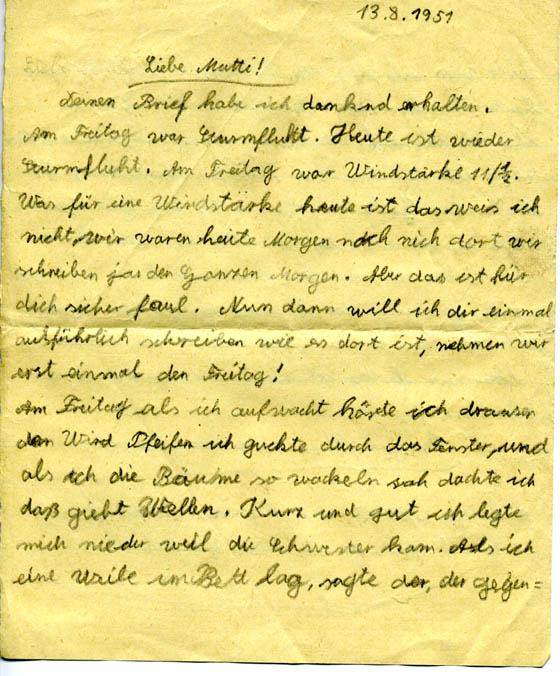 13.8.1951
Liebe Mutti!
Deinen Brief habe ich danknd erhalten.
Am Freitag war Sturmfluht. Heute ist wieder
Sturmfluht. Am Freitag war Windstärke 11/½.
Was für eine Windstärke heute ist das weis ich
nicht, wir waren heite Morgen noch nich dort wir
schreiben ja den Ganzen Morgen. Aber das ist für
dich sicher faul. Nun dann will ich dir einmal
ausführlich schreiben wie es dort ist, nehmen wir
erst einmal den Freitag!
Am Freitag als ich aufwacht hörete ich drausen
den Wind Pfeifen ich guckte durch das Fenster, und
als ich die Bäume so wackeln sah dachte ich
daß giebt Wellen. Kurz und gut ich legte
mich nieder weil die Schwester kam. Als ich
eine Weile im Bett lag, sagte der, der gegen=